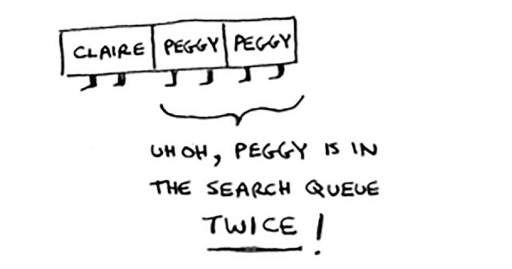 CLAIRE PEGGY PEGGY
UH OH, PEGGY IS IN
THE SEARCH QUEUE
TWICE!